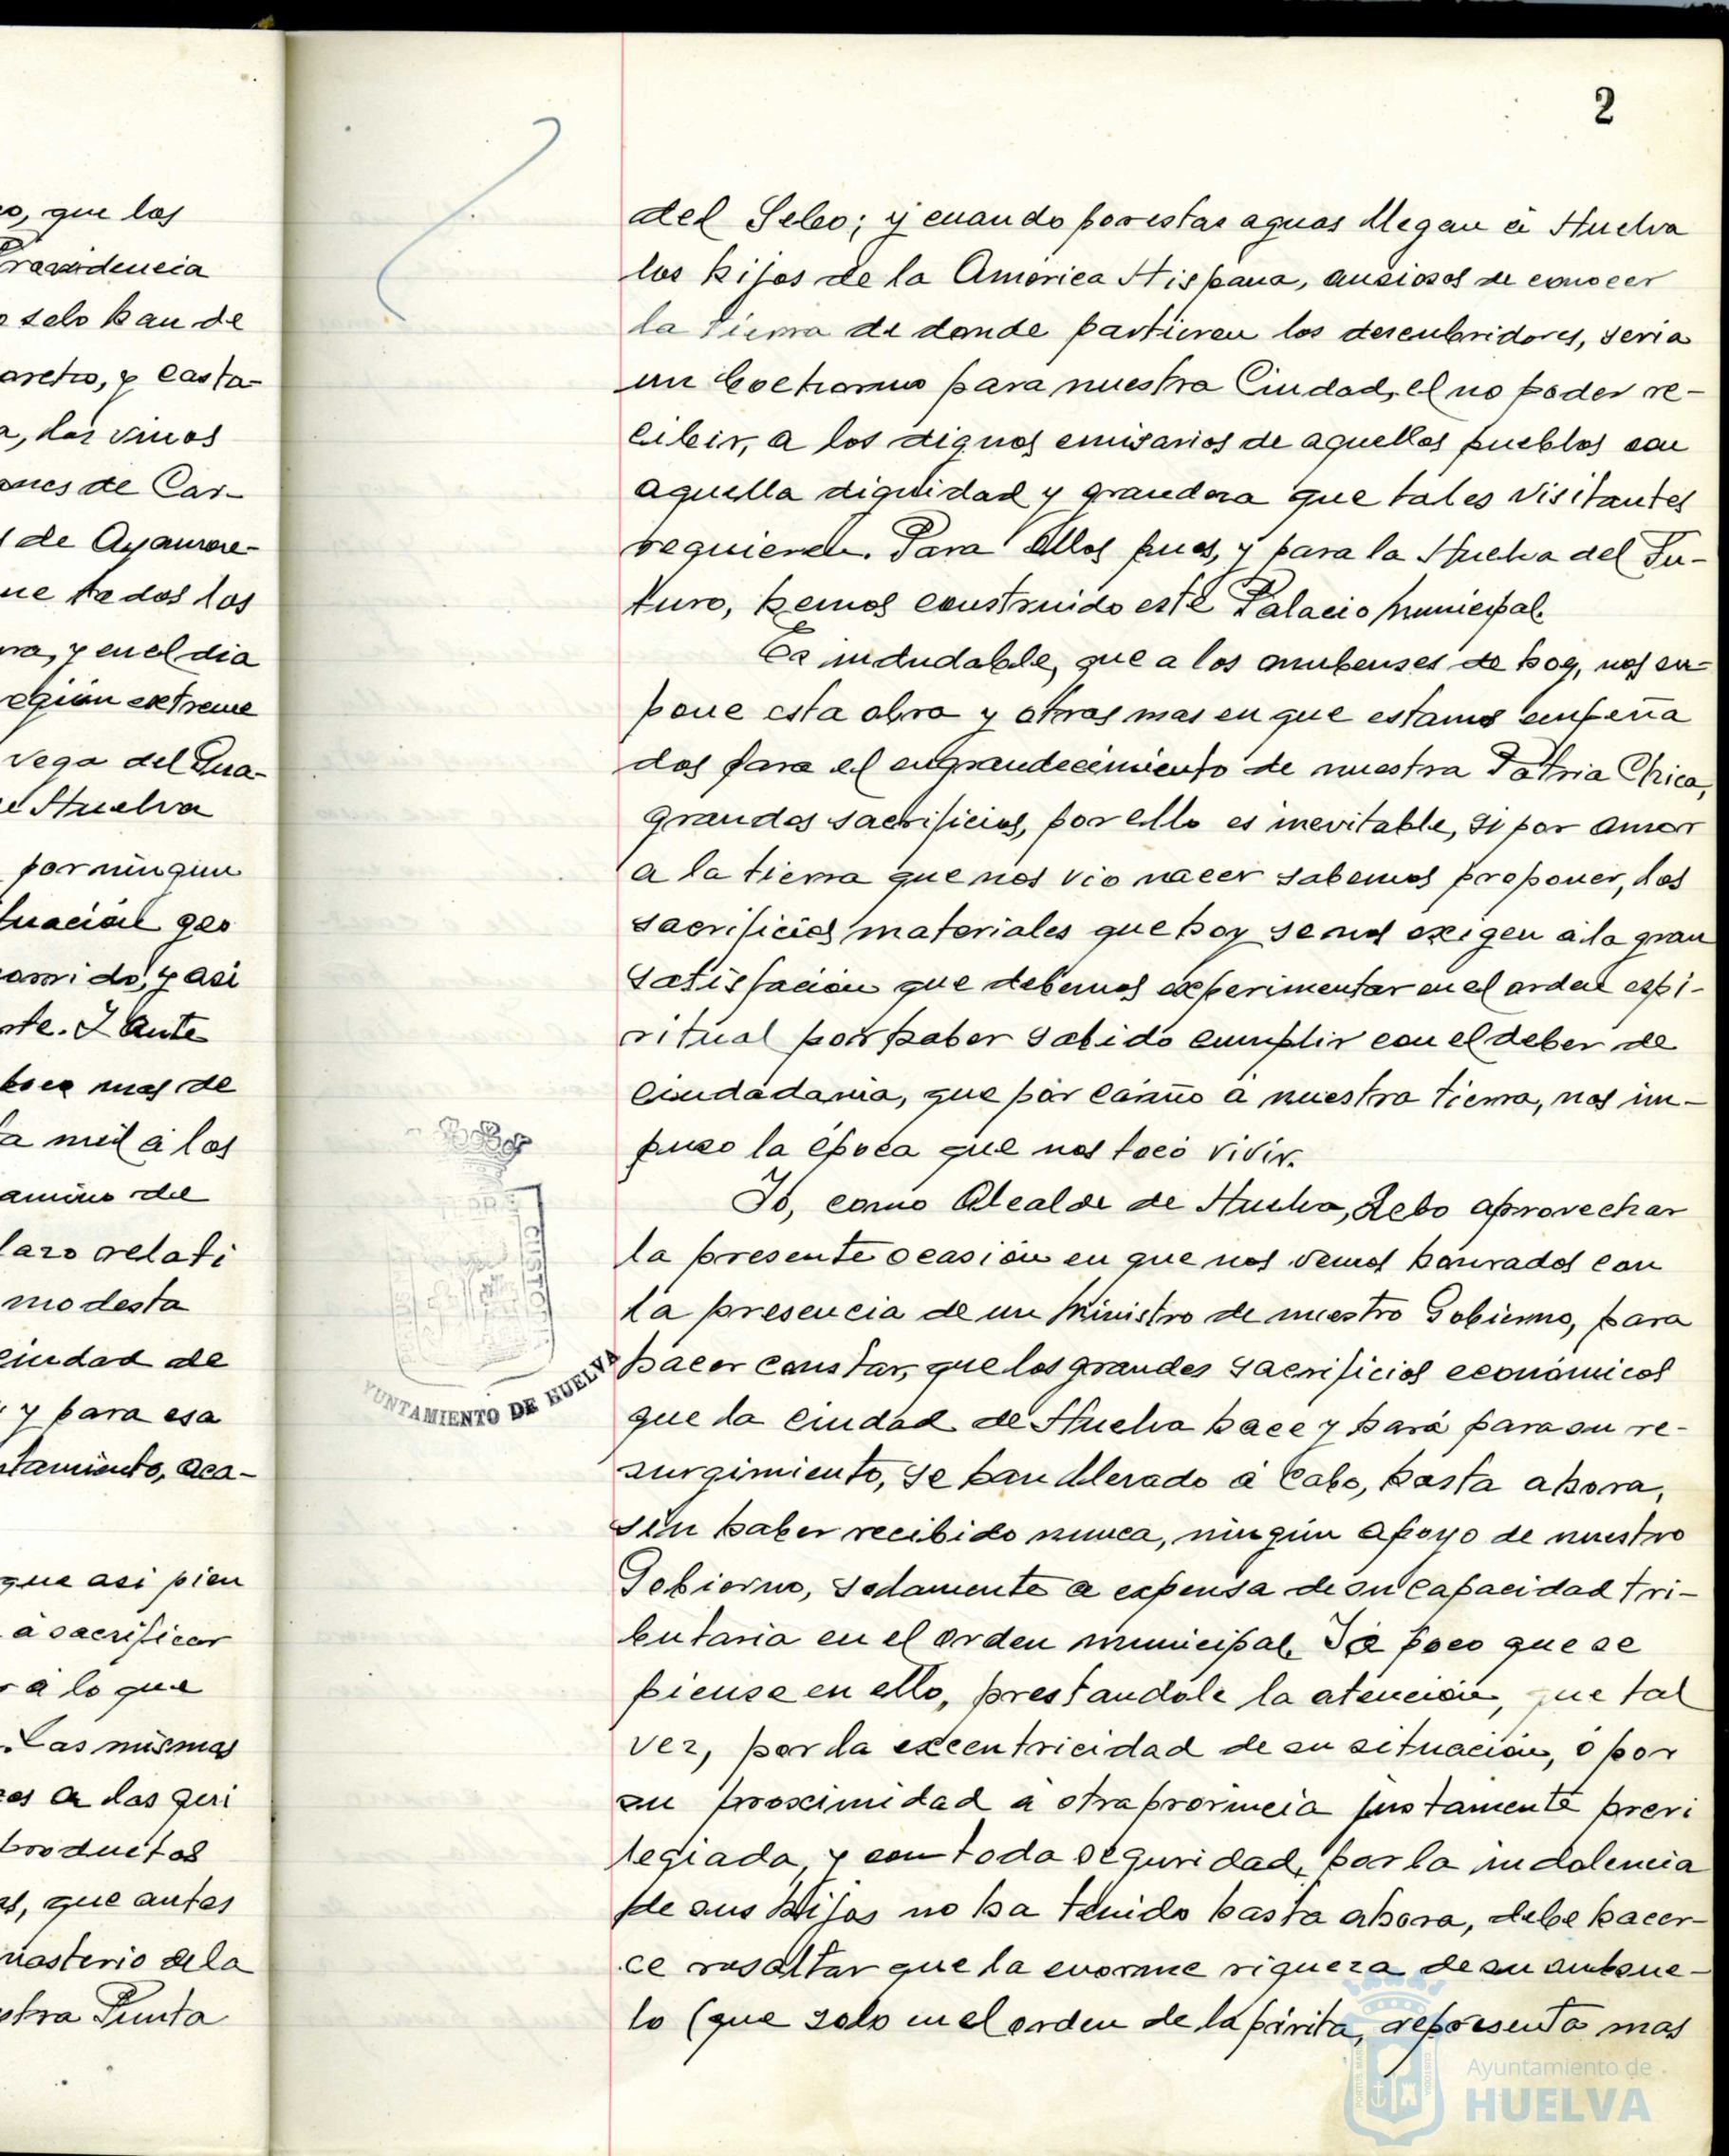 o, que las
Providencia
o selo han de
aretro, y Casta-
a, los vinos
ones de Car-
de Ayamon-
ue todos los
ra, y en el dia
egión extreme
vega del Gua-
e Huelva
por ningun
tuación geo
y asi
te. Y ante
boca mas de
a mil á los
amino del
lazo relati
modesta
ciudad de
y para esa
ntamiento, aca-
que asi pien
á sacrificar
r a lo que
. Las mismas
es a las qui
productos
s, que antes
nasterio de la
stra Punta
2
del Sebo; y cuando por estas aguas llegan á Huelva
los hijos de la America Hispana, ansiosos de conocer
la tierra de donde partieron los descubridores, seria
un bochorno para nuestra Ciudad, el no poder re-
cibir, a los dignos emisarios de aquellos pueblos con
aquella dignidad y grandeza que tales visitantes
requieren. Para ellos pues, y para la Huelva del Fu-
turo, hemos construido este Palacio Municipal.
Es indudable, que a los onubenses de hoy, nos en-
pone esta obra y otras mas en que estamos empeña
dos para el engrandecimiento de nuestra Patria Chica,
grandes sacrificios, por ello es inevitable, si por amor
a la tierra que nos vio nacer sabemos proponer, los
sacrificios materiales que hoy se nos exigen a la gran
satisfación que debemos experimentar en el orden espi-
ritual por haber sabido cumplir con el deber de
ciudadania, que por cariño a nuestra tierra, nos im-
puso la época que nos tocó vivir.
Yo, como Alcalde de Huelva, debo aprovechar
la presente ocasión en que nos vemos honrados con
la presencia de un Ministro de nuestro Gobierno, para
hacer constar, que los grandes sacrificios económicos
que la ciudad de Huelva hace y hará para su re-
surgimiento, se han llevado á cabo, hasta ahora,
sin haber recibido nunca, ningún apoyo de nuestro
Gobierno, solamente a expensa de su capacidad tri-
butaria en el orden municipal. Y a poco que se
piense en ello, prestandole la atención, que tal
vez, por la excentricidad de su situación, ó por
su proximidad á otra provincia justamente previ
legiada, y con toda seguridad, por la indolencia
de sus hijos no ha tenido hasta ahora, debe hacer-
ce resaltar que la enorme riqueza de su subsue-
lo (que solo en el orden de la pirita, representa mas
YUNTAMIENTO DE HUELVA
Ayuntamiento de
HUELVA